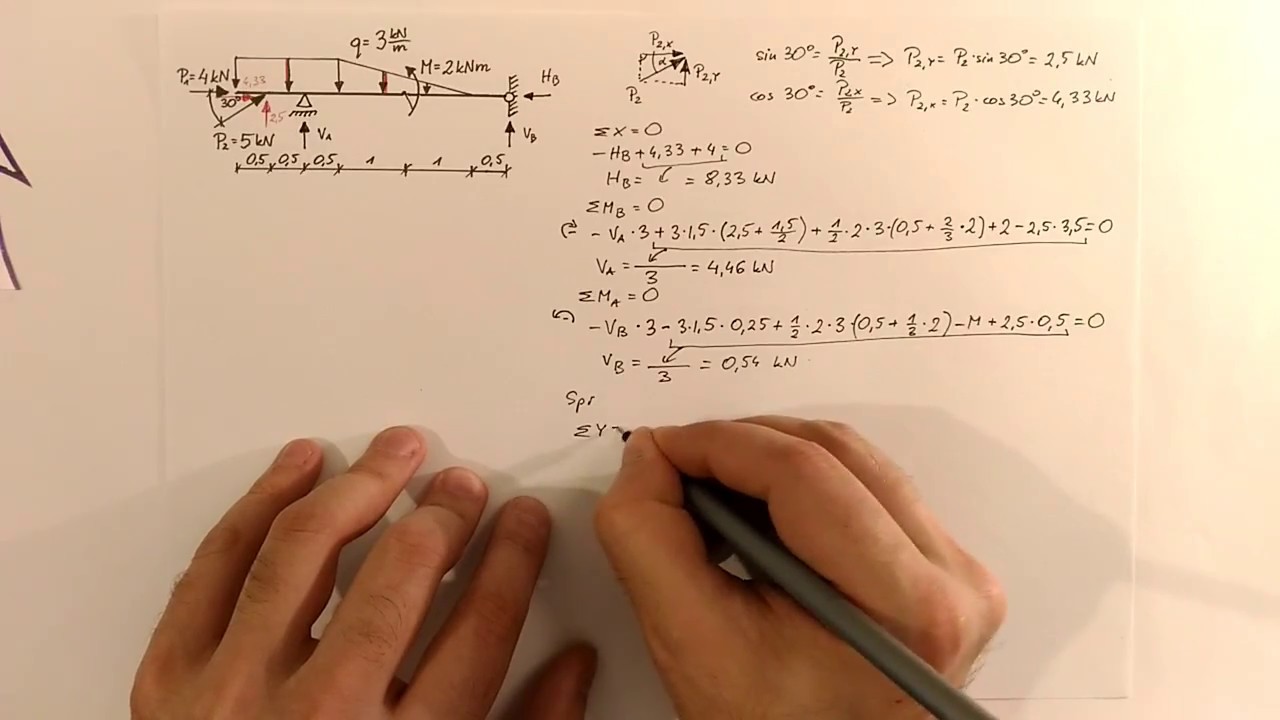 q = 3 kN/m
P₁ = 4 kN
4,33
M = 2 kNm
H_B
30°
2,5
V_A
V_B
P₂ = 5 kN
0,5 0,5 0,5 1 1 0,5
P₂,x
α
P₂,y
P₂
sin 30° = P₂,y/P₂ => P₂,y = P₂·sin 30° = 2,5 kN
cos 30° = P₂,x/P₂ => P₂,x = P₂·cos 30° = 4,33 kN
ΣX = 0
-H_B + 4,33 + 4 = 0
H_B = = 8,33 kN
ΣM_B = 0
- V_A · 3 + 3·1,5·(2,5 + 1,5/2) + 1/2·2·3·(0,5 + 2/3·2) + 2 - 2,5·3,5 = 0
V_A = /3 = 4,46 kN
ΣM_A = 0
- V_B · 3 - 3·1,5·0,25 + 1/2·2·3·(0,5 + 1/3·2) - M + 2,5·0,5 = 0
V_B = /3 = 0,54 kN
Spr
ΣY